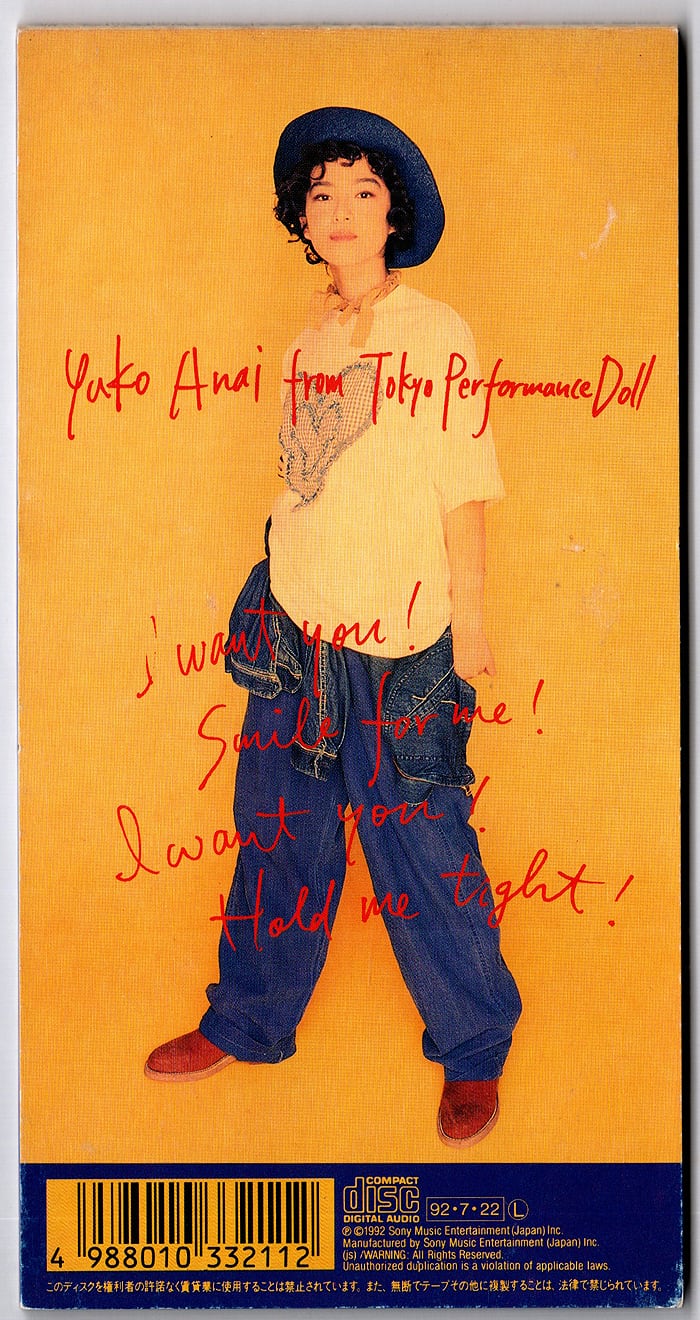 Yuko Anai from Tokyo Performance Doll
i want you!
Smile for me!
I want you!
Hold me tight!
COMPACT
disc
DIGITAL AUDIO
92・7・22 L
4 988010 332112
Ⓟ ©1992 Sony Music Entertainment (Japan) Inc.
Manufactured by Sony Music Entertainment (Japan) Inc.
(js) /WARNING: All Rights Reserved.
Unauthorized duplication is a violation of applicable laws.
このディスクを権利者の許諾なく賃貸業に使用することは禁止されています。また、無断でテープその他に複製することは、法律で禁じられています。